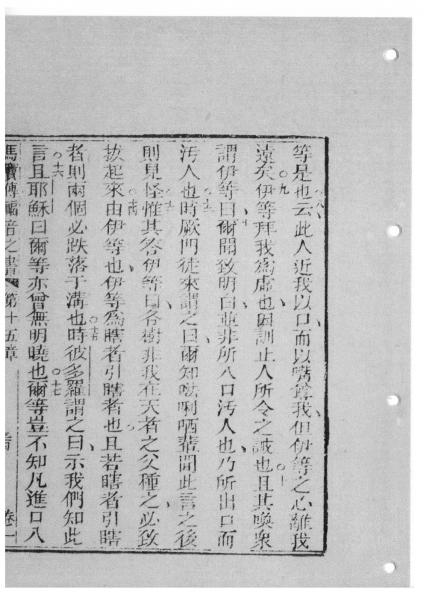 等是也云此人近我以口而以嘴尊我但伊等之心離我
遠矣伊等拜我為虛也因訓止人所令之誡也且其喚衆
謂伊等曰爾聞致明白並非所入口汚人也乃所出口而
汚人也時厥門徒來謂之曰爾知𠵽唎哂輩聞此言之後
則見怪惟其答伊等曰各樹非我在天者之父種之必致
拔起來由伊等也伊等為瞎者引瞎者也且若瞎者引瞎
者則兩個必跌落于溝也時彼多羅謂之曰示我們知此
言且耶穌曰爾等亦曾無明曉也爾等豈不知凡進口入
馬竇傳福音之書 第十五章 卷一